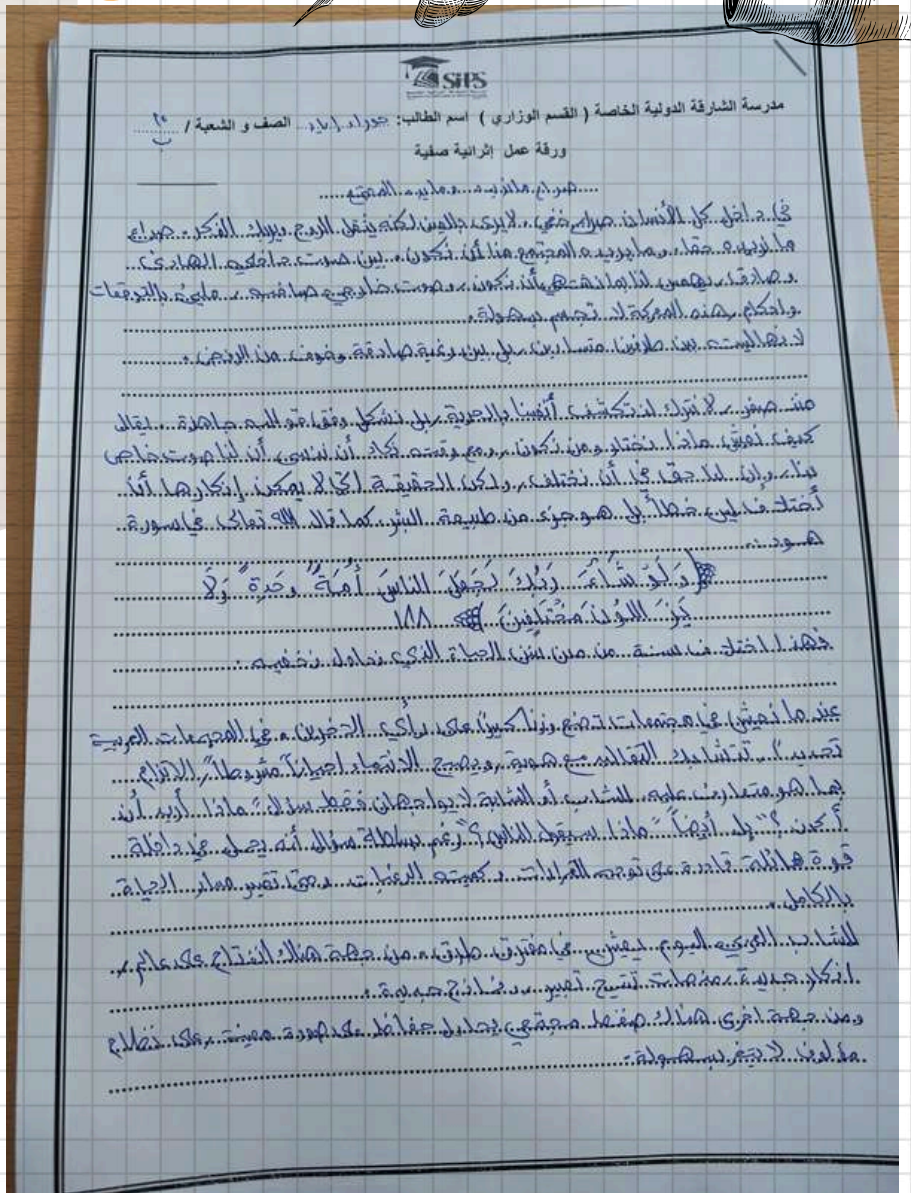 SIPS
مدرسة الشارقة الدولية الخاصة ( القسم الوزاري ) اسم الطالب: الصف و الشعبة /
ورقة عمل إثرائية صفية
صراع مانريده وما يريده المجتمع
في داخل كل الأنسان صراع خفي، لا يرى بالعين لكنه يثقل الروح ويربك الفكر، صراع
ما نريده حقا، وما يريده المجتمع منا أن نكون، بين صوت داخلي الهادئ
وصادقا، يهمس لنا بما نشتهي أن نكون، وصوت خارجي، مليء بالتوقعات
واحكام، هذه المعركة لا تحسم بسهولة.
لا نها ليست بين طرفين متساوين، بل بين رغبة صادقة وخوف من الرفض.
منذ صغر، لا نترك لنكتشف أنفسنا بالحرية، بل نشكل وفق قوالب جاهزة، يقال
كيف نعيش، ماذا نختار ومن نكون، ومع وقت نكاد أن ننسى أن لنا صوت خاص
بنا، وإن لنا حق في أن نختلف، ولكن الحقيقة التي لا يمكن إنكارها أن
أختلاف ليس خطأ بل هو جزء من طبيعة البشر، كما قال الله تعالى في سورة
هود:
وَلَوْ شَآءَ رَبُّكَ لَجَعَلَ النَاسَ أُمَةً وحَدِةً وَلَا
يَزَالُونَ مُخْتَلِفِينَ ١١٨
فهذا اختلاف سنة من سنن الحياة الذي نحاول نخفيه.
عند ما نعيش في مجتمعات تضع وزنا كبيرًا على رأي الاخرين، في المجتمعات العربية
تحديدًا، تتشابك التقاليد مع هوية، ويصبح الانتماء احيانًا مشروطًا الالتزام
بما هو متعارف عليه، للشاب أو الشابة لا يواجهان فقط سؤال "ماذا أريد أن
أكون؟" بل أيضًا "ماذا سيقول للناس؟" رغم بساطة سؤال أنه يحمل في داخلة
قوة هائلة قادرة على توجه القرارات، وكميته الرغبات، وحتى تغير مسار الحياة
بالكامل.
للشاب العربي اليوم يعيش في مفترق طرق، من جهة هناك انفتاح على عالم،
افكار جديدة، منصات تتيح تعبير، ونماذج جديدة.
ومن جهة اخرى هناك ضغط مجتمعي يحاول حفاظ على صورة معينة، على نظام
مألوف لا يتغير بسهولة.